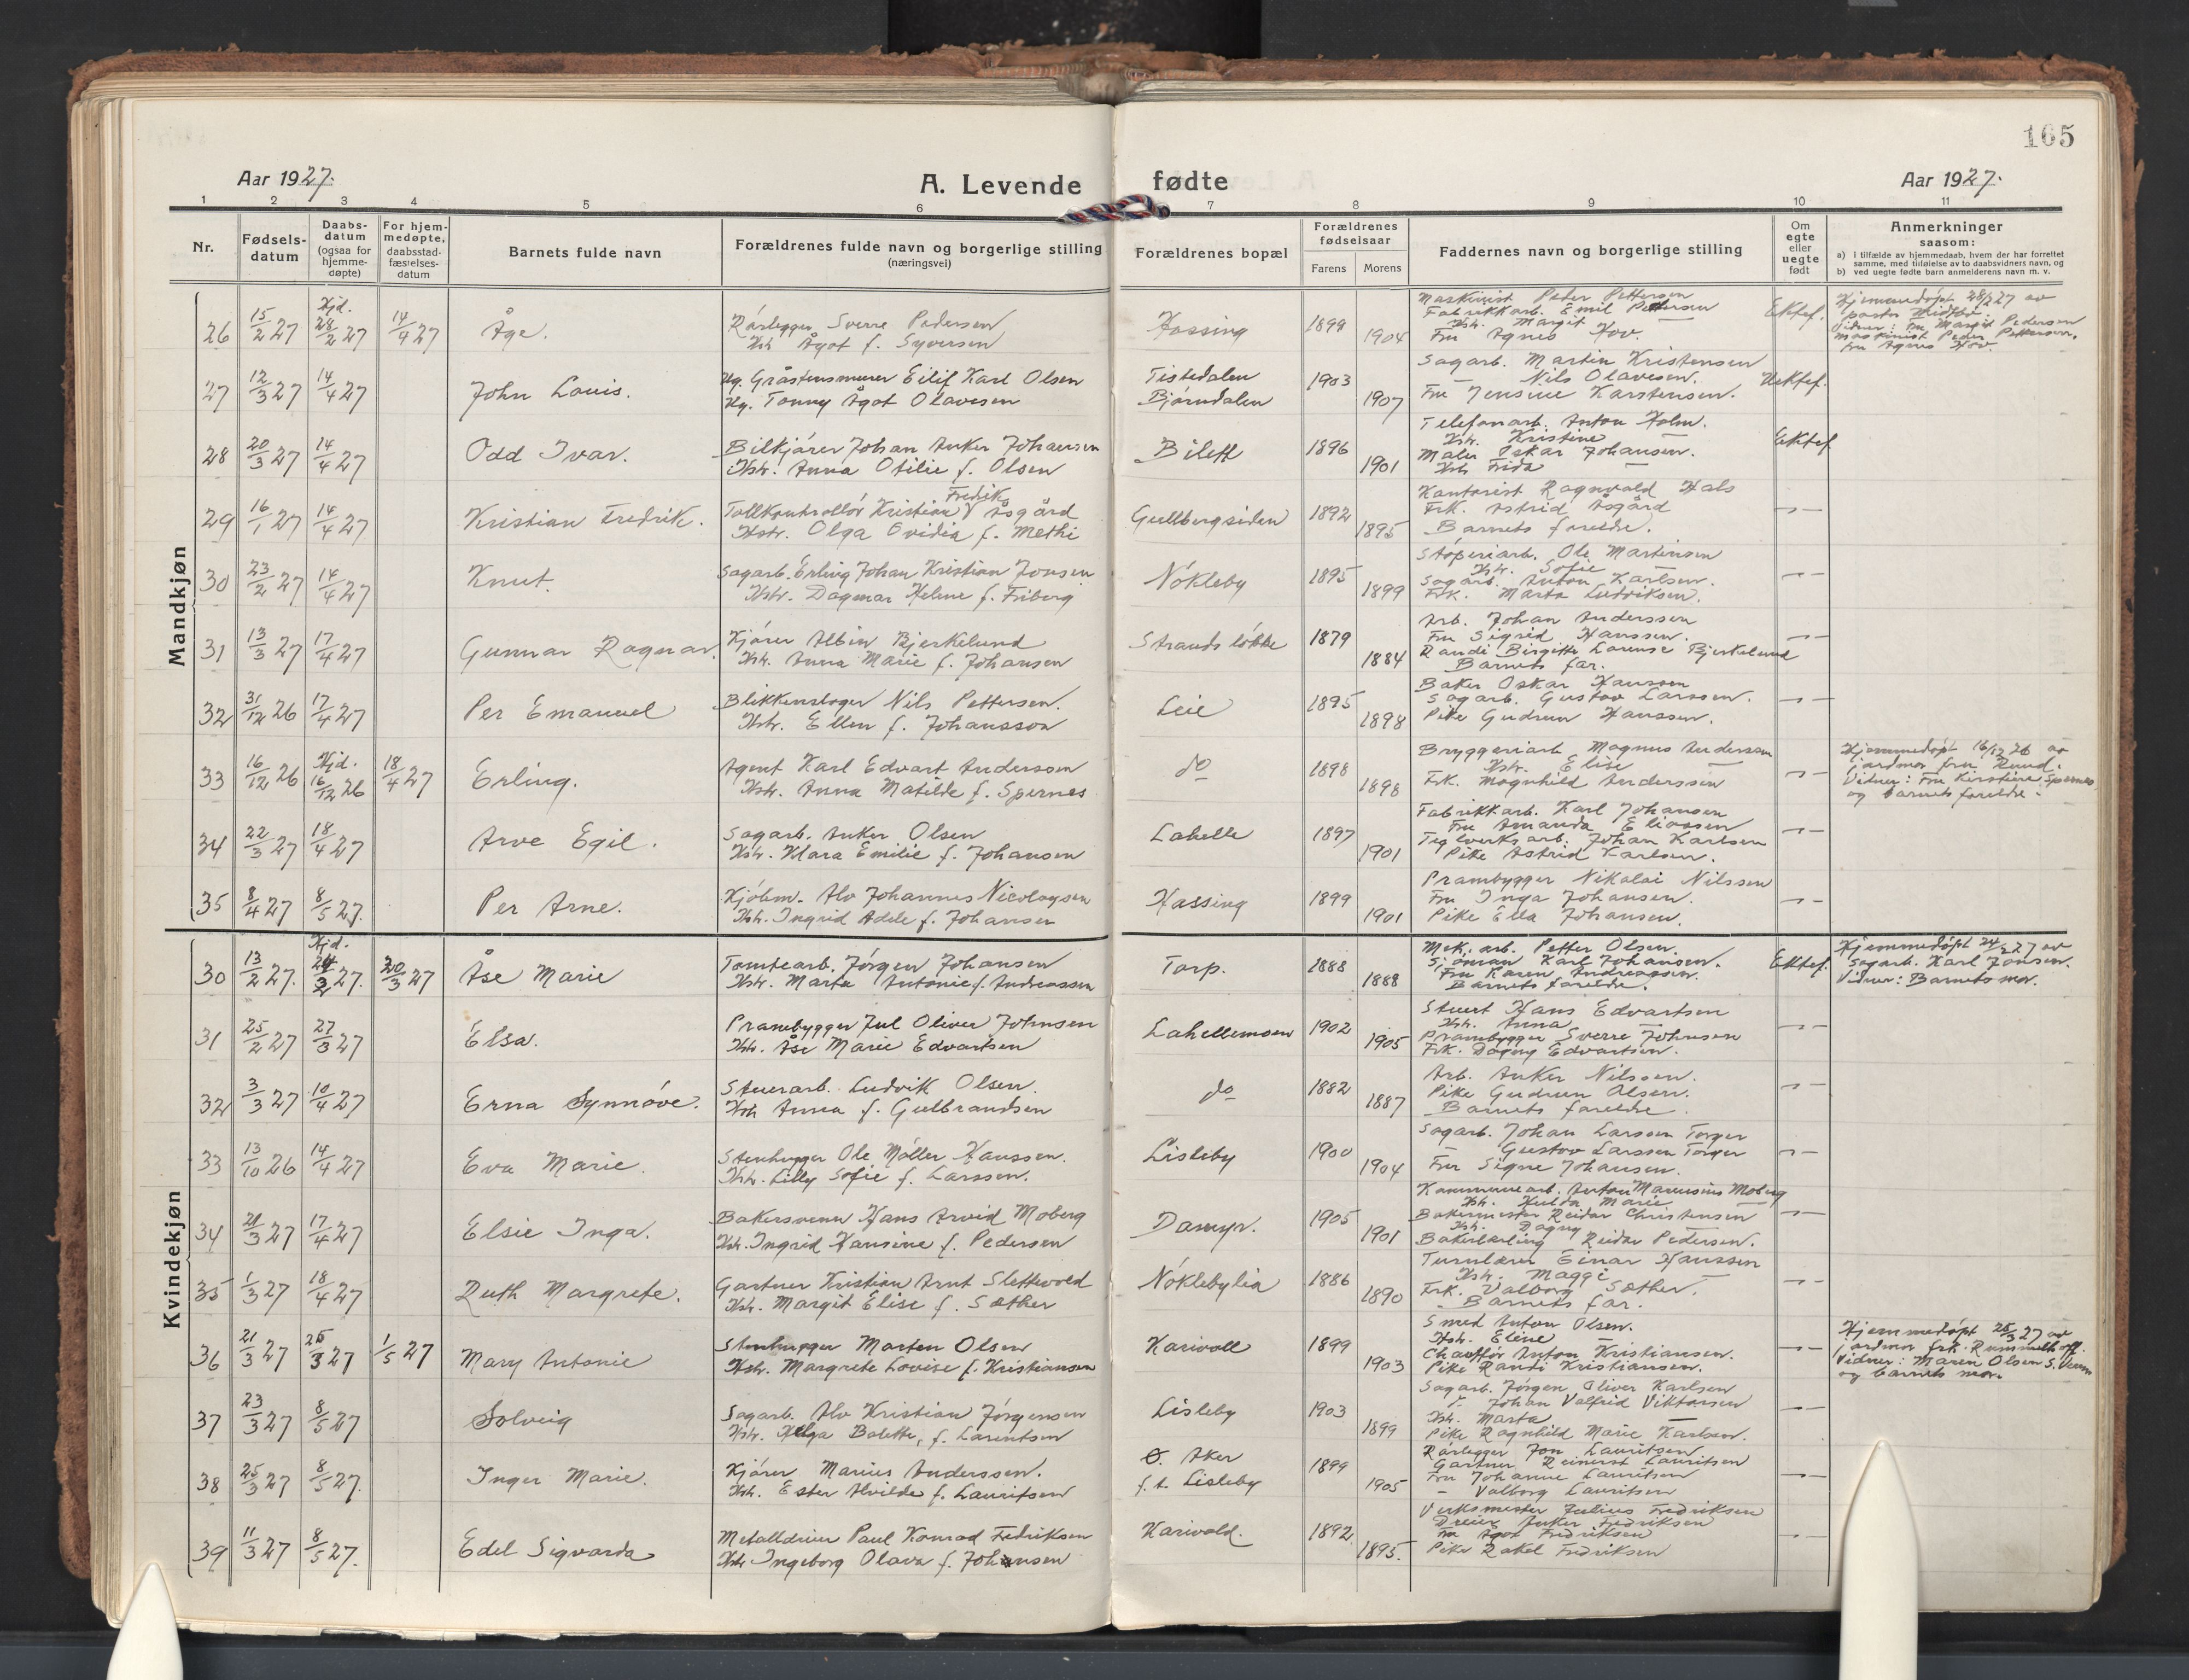 165
Aar 1927.
A. Levende fødte
Aar 1927.
1 2 3 4 5 6 7 8 9 10 11
Nr.
Fødsels-
datum
Daabs-
datum
(ogsaa for
hjemme-
døpte)
For hjem-
medøpte,
daabsstad-
fæstelses-
datum
Barnets fulde navn
Forældrenes fulde navn og borgerlige stilling
(næringsvei)
Forældrenes bopæl
Forældrenes
fødselsaar
Farens Morens
Faddernes navn og borgerlige stilling
Om
egte
eller
uegte
født
Anmerkninger
saasom:
a) I tilfælde av hjemmedaab, hvem der har forrettet
samme, med tilføielse av to daabsvidners navn, og
b) ved uegte fødte barn anmelderens navn m. v.
Mandkjøn
26 15/2 27 Hjd. 28/2 27 14/4 27 Åge.
Rørlegger Sverre Pedersen
Hst. Ågot f. Syversen
Hassing 1899 1904
Maskinist Peder Pettersen
Fabrikkarb. Emil Pettersen
Hstr. Margit —
Fru Agnes Hov.
Ektef.
Hjemmedøpt 28/2 27 av
pastor
Vidner: Fru Margit Pedersen
Maskinist Peder Pettersen,
Fru Agnes Hov.
27 12/3 27 14/4 27 John Louis.
Ug. Gråstensmurer Eilif Karl Olsen
Ug. Tonny Ågot Olavesen
Tistedalen
Bjørndalen
1903 1907
Sagarb. Martin Kristensen
— Nils Olavesen.
Fru Jensine Karstensen.
Uektef.
28 20/3 27 14/4 27 Odd Ivar.
Bilkjører Johan Anker Johansen
Hstr. Anna Otilie f. Olsen
Bilett 1896 1901
Telefonarb. Anton Holm.
Hstr. Kristine —
Maler Oskar Johansen.
Hstr Frida —
Ektef.
29 16/1 27 14/4 27 Kristian Fredrik.
Fredrik
Tollkontrollør Kristian V Åsgård
Hstr. Olga Ovidia f. Methi
Gullbergsiden 1892 1895
Kontorist Ragnvald Hals
Frk. Astrid Åsgård
Barnets foreldre.
—"—
30 23/2 27 14/4 27 Knut.
Sagarb. Erling Johan Kristian Jonsen
Hstr. Dagmar Helene f. Friberg
Nökleby 1895 1899
Støperiarb. Ole Martinsen
Hstr. Sofie —
Sagarb. Anton Karlsen.
Frk. Marta Ludviksen.
—"—
31 13/3 27 17/4 27 Gunnar Ragnar.
Kjører Albin Bjerkelund
Hstr. Anna Marie f. Johansen
Strandsløkke 1879 1884
Arb. Johan Anderssen
Fru Sigrid Hanssen.
Randi Birgitte Lorense Bjerkelund
Barnets far.
—"—
32 31/12 26 17/4 27 Per Emanuel
Blikkenslager Nils Pettersen.
Hstr. Ellen f. Johansson
Leie 1895 1898
Baker Oskar Hanssen
Sagarb. Gustav Larssen.
Pike Gudrun Hanssen.
—"—
33 16/12 26 Hjd. 16/12 26 18/4 27 Erling.
Agent Karl Edvart Anderssen
Hstr. Anna Matilde f. Spernes
do 1898 1898
Bryggeriarb Magnus Anderssen
Hstr. Elise —
Frk. Magnhild Anderssen
—"—
Hjemmedøpt 16/12 26 av
jordmor fru Lund.
Vidner: Fru Kirstine Spernes
og barnets foreldre.
34 22/3 27 18/4 27 Arve Egil.
Sagarb. Anker Olsen
Hstr. Klara Emilie f. Johansen
Lahelle 1897 1901
Fabrikkarb. Karl Johansen
Fru Amanda Eliassen
Teglverksarb. Johan Karlsen
Pike Astrid Karlsen.
—"—
35 8/4 27 8/5 27. Per Arne.
Kjøbm. Alv Johannes Nicolaysen
Hstr. Ingrid Adele f. Johansen
Hassing 1899 1901
Prambygger Nikolai Nilssen
Fru Inga Johansen.
Pike Ella Johansen.
—"—
Kvindekjøn
30 13/2 27. Hjd. 27. 20/3 27 Åse Marie
Tomtearb. Jørgen Johansen
Hstr. Marta Antonie f. Andreassen
Torp. 1888 1888
Mek. arb. Petter Olsen.
Sjømann Karl Johansen.
Fru Karen Andreassen.
Barnets foreldre.
Ektef.
Hjemmedøpt 24/2 27 av
Sagarb. Karl Jonsen.
Vidner: Barnets mor.
31 25/2 27 27/3 27 Elsa.
Prambygger Jul Oliver Johnsen
Hstr. Åse Marie Edvartsen
Lahellemoen 1902 1905
Stuert Hans Edvartsen
Hstr. Anna —
Prambygger Sverre Johnsen
Frk. Dagny Edvartsen.
—"—
32 3/3 27 10/4 27 Erna Synnøve.
Stuerarb. Ludvik Olsen.
Hstr Anna f. Gulbrandsen
do 1882 1887
Arb. Anker Nilssen.
Pike Gudrun Olsen.
Barnets foreldre.
—"—
33 13/10 26 14/4 27 Eva Marie.
Stenhugger Ole Møller Hanssen.
Hstr. Lilly Sofie f. Larssen.
Lisleby 1900 1904
Sagarb. Johan Larssen Torger
— Gustav Larssen Torger
Fru Signe Johansen.
—"—
34 21/3 27 17/4 27 Elsie Inga.
Bakersvenn Hans Arvid Moberg
Hstr. Ingrid Hansine f. Pedersen
Dammyr. 1905 1901
Kommunearb. Anton Marensius Moberg
Hstr. Hulda Marie —
Bakermester Reidar Christensen
Hstr. Dagny —
Bakerlærling Reidar Pedersen.
—"—
35 1/3 27 18/4 27 Ruth Margrete.
Gartner Kristian Arnt Slettevold
Hstr. Margit Elise f. Sæther
Nöklebylia 1886 1890
Turnlærer Einar Hanssen
Hstr. Maggi —
Frk. Valborg Sæther.
Barnets far.
—"—
36 21/3 27 25/3 27 1/5 27 Mary Antonie
Stenhugger Morten Olsen
Hstr. Margrete Lovise f. Kristiansen
Karivoll 1899 1903
Smed Anton Olsen.
Hstr. Eline —
Chauffør Anton Kristiansen.
Pike Randi Kristiansen.
—"—
Hjemmedøpt 25/3 27 av
jordmor frk. Rummelhoff.
Vidner: Maren Olsen S.
og barnets mor.
37 23/3 27 8/5 27 Solveig
Sagarb. Alv Kristian Jørgensen
Hstr. Helga Bolette, f. Larentsen
Lisleby 1903 1899
Sagarb. Jørgen Oliver Karlsen
do Johan Valfrid Viktorsen
Hstr. Marta —
Pike Ragnhild Marie Karlsen.
—"—
38 25/3 27 8/5 27. Inger Marie.
Kjører Marius Anderssen.
Hstr. Ester Alvilde f. Lauritsen
Ø. Aker
f. t. Lisleby
1899 1905
Rørlegger Jon Lauritsen
Gartner Reinert Lauritsen
Fru Johanne Lauritsen
— Valborg Lauritsen
—"—
39 11/3 27 8/5 27. Edel Sigvarda
Metalldreier Paul Konrad Fredriksen
Hstr Ingeborg Olava f. Johansen
Karivold. 1892 1895.
Verksmester Julius Fredriksen
Dreier Anker Fredriksen
Fru Ågot Fredriksen
Pike Rakel Fredriksen
—"—